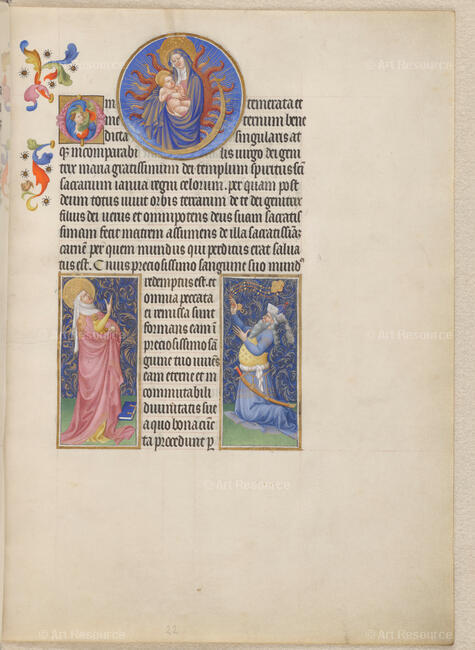 © Art Resource
© Art Resource
in temerata et
me ternum bene
dicta singularis at
q; incomparabi lis uirgo dei geni
trix maria gratissimum dei templum spiritus scī
sacrarium ianua regni celorum. per quam post
deum totus uiuit orbis terrarum
et omnipotens deus suam sacratis
simam fecit matrem assumens de illa sacratissiāz
carnē per quem mundus qui perditus erat salua
tus est. Cuius preciosissimo sanguine suo mundꝰ
redemptus est. et
omnia peccata
ei remissa sunt
formans eam ī
preciosissimo sā
guine suo
eam eterne et in
commutabili
diuinitatis sue
a quo bona cūc
ta procedunt ꝑ
© Art Resource
© Art Resource
22
© Art Resource
© Art Resource